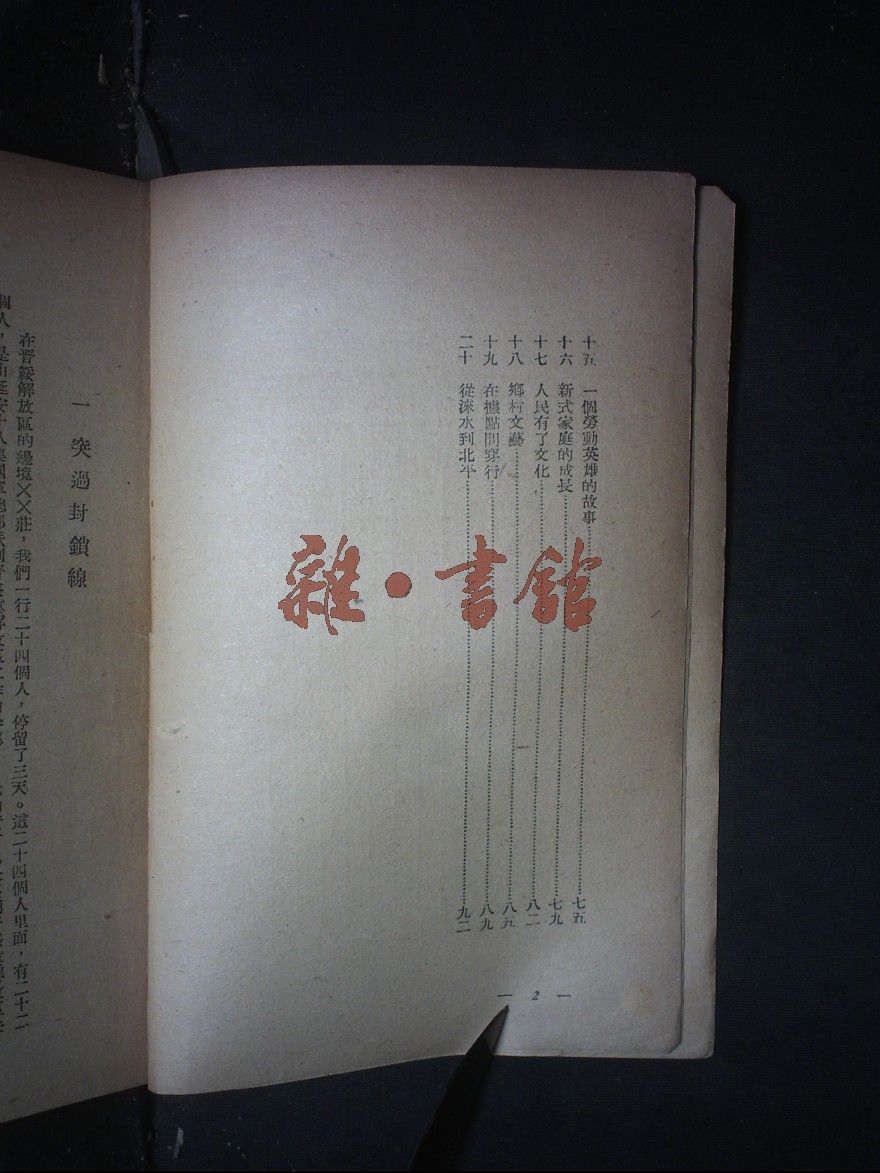 十五　一個勞動英雄的故事………七五
十六　新式家庭的成長………七九
十七　人民有了文化………八二
十八　鄉村文藝………八五
十九　在據點間穿行………八九
二十　從淶水到北平………九二
— 2 —
雜·書館
一　突過封鎖線
在晋綏解放區的邊境××莊，我們一行二十四個人，停留了三天。這二十四個人里面，有二十二
個人，是由延安十八集團軍